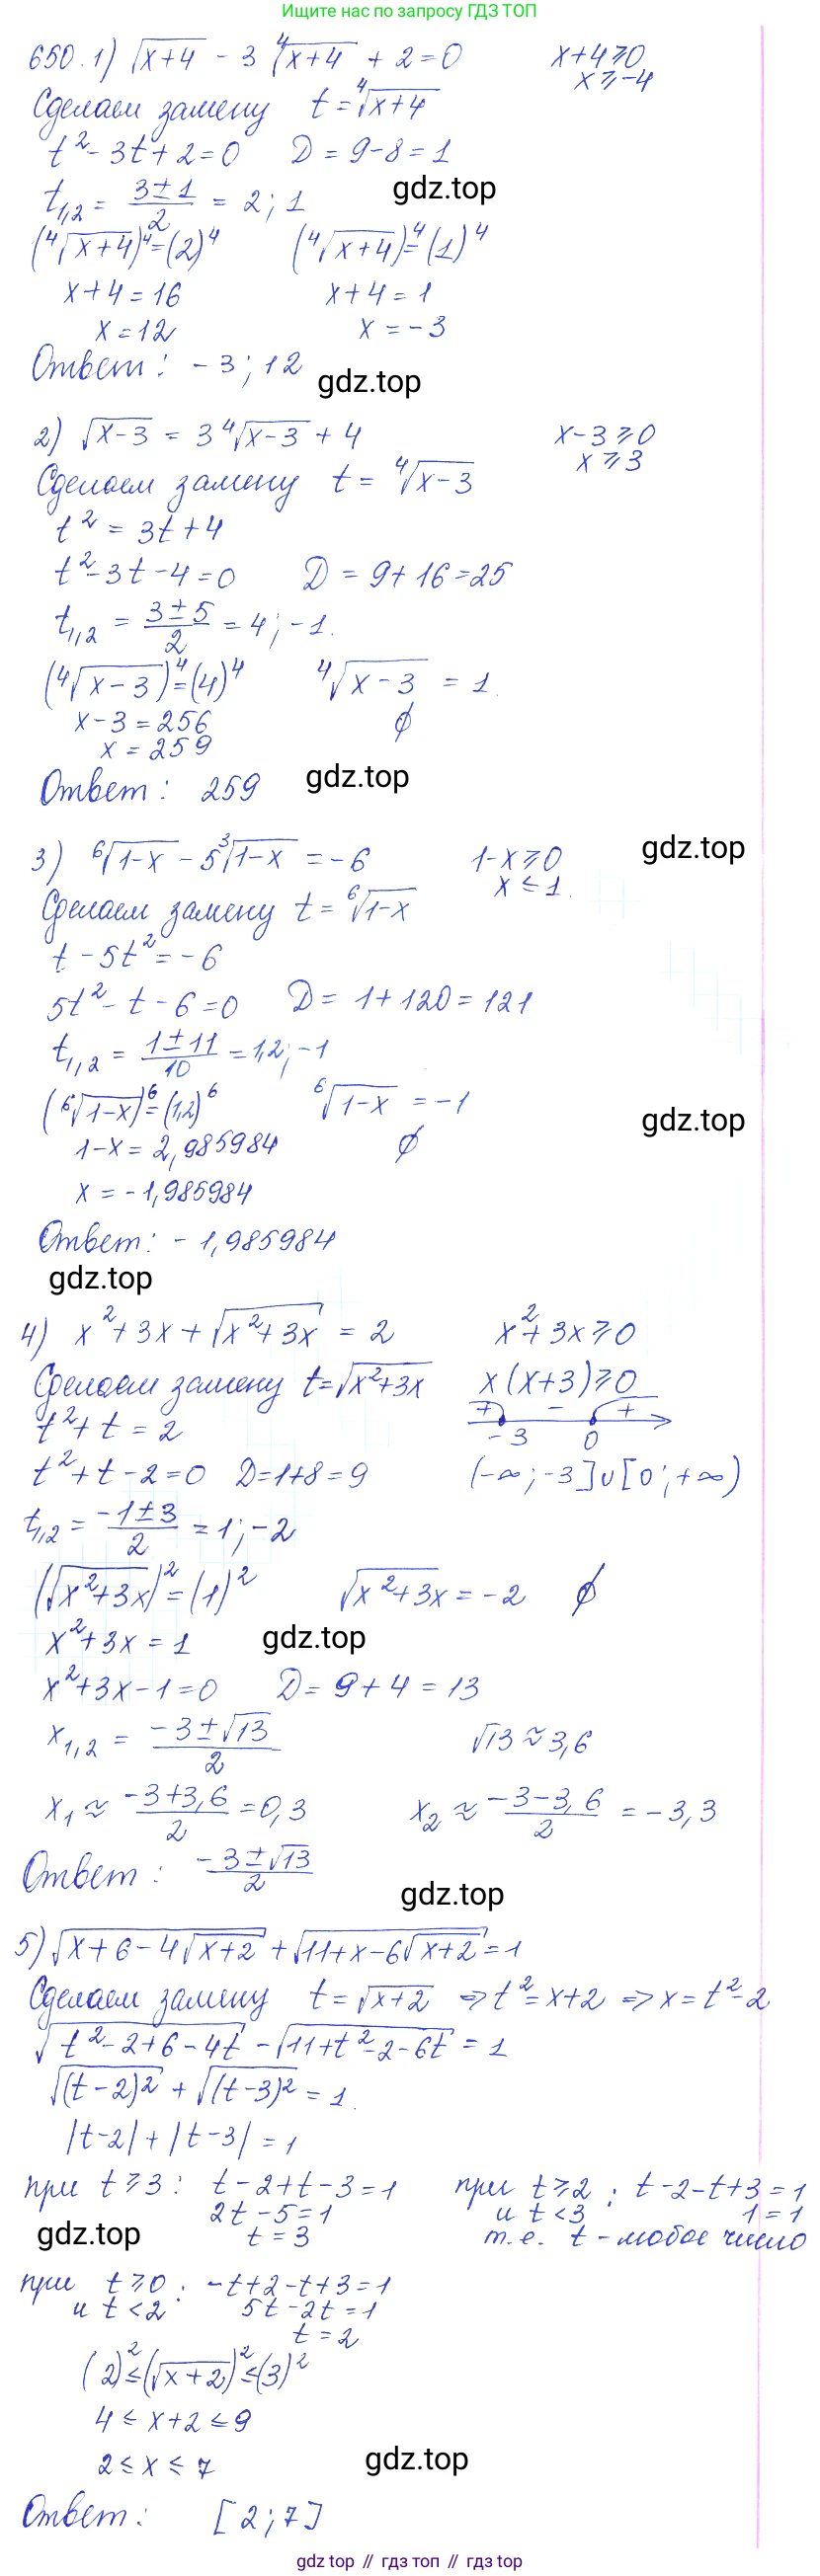 Ищите по запросу ГДЗ ТОП
650. 1) √(x+4) - 3 ⁴√(x+4) + 2 = 0    x+4 ⩾ 0
x ⩾ -4
Сделаем замену t = ⁴√(x+4)
t² - 3t + 2 = 0    D = 9-8 = 1
t₁,₂ = (3±1)/2 = 2; 1    gdz.top
(⁴√(x+4))⁴ = (2)⁴    (⁴√(x+4))⁴ = (1)⁴
x+4 = 16    x+4 = 1
x = 12    x = -3
Ответ: -3; 12
gdz.top
2) √(x-3) = 3 ⁴√(x-3) + 4    x-3 ⩾ 0
x ⩾ 3
Сделаем замену t = ⁴√(x-3)
t² = 3t+4
t² - 3t - 4 = 0    D = 9+16 = 25
t₁,₂ = (3±5)/2 = 4; -1.
(⁴√(x-3))⁴ = (4)⁴    ⁴√(x-3) = 1.
x-3 = 256    ∅
x = 259
Ответ: 259    gdz.top
3) ⁶√(1-x) - 5 ³√(1-x) = -6    1-x ⩾ 0    gdz.top
x ≤ 1.
Сделаем замену t = ⁶√(1-x)
t - 5t² = -6
5t² - t - 6 = 0    D = 1+120 = 121
t₁,₂ = (1±11)/10 = 1,2; -1
(⁶√(1-x))⁶ = (1,2)⁶    ⁶√(1-x) = -1    gdz.top
1-x = 2,985984    ∅
x = -1,985984
Ответ: -1,985984
gdz.top
4) x² + 3x + √(x²+3x) = 2    x² + 3x ⩾ 0
Сделаем замену t = √(x²+3x)    x(x+3) ⩾ 0
+ - +
t² + t = 2    -3    0
t² + t - 2 = 0    D = 1+8 = 9    (-∞; -3] ∪ [0; +∞)
t₁,₂ = (-1±3)/2 = 1; -2
(√(x²+3x))² = (1)²    √(x²+3x) = -2    ∅
x² + 3x = 1    gdz.top
x² + 3x - 1 = 0    D = 9+4 = 13
x₁,₂ = (-3±√13)/2    √13 ≈ 3,6
x₁ ≈ (-3+3,6)/2 = 0,3    x₂ ≈ (-3-3,6)/2 = -3,3
Ответ: (-3±√13)/2    gdz.top
5) √(x+6-4√(x+2)) + √(11+x-6√(x+2)) = 1
Сделаем замену t = √(x+2) ⇒ t² = x+2 ⇒ x = t²-2
√(t²-2+6-4t) - √(11+t²-2-6t) = 1
√((t-2)²) + √((t-3)²) = 1.
|t-2| + |t-3| = 1
при t ⩾ 3: t-2+t-3 = 1    при t ⩾ 2 : t-2-t+3 = 1
2t-5 = 1    и t < 3    1 = 1
gdz.top    t = 3    т.е. t - любое число
при t ⩾ 0 : -t+2-t+3 = 1
и t < 2    5t-2t = 1
t = 2
(2)² ≤ (√(x+2))² ≤ (3)²
4 ≤ x+2 ≤ 9
2 ≤ x ≤ 7    gdz.top
Ответ: [2; 7]
gdz top // гдз топ // гдз top